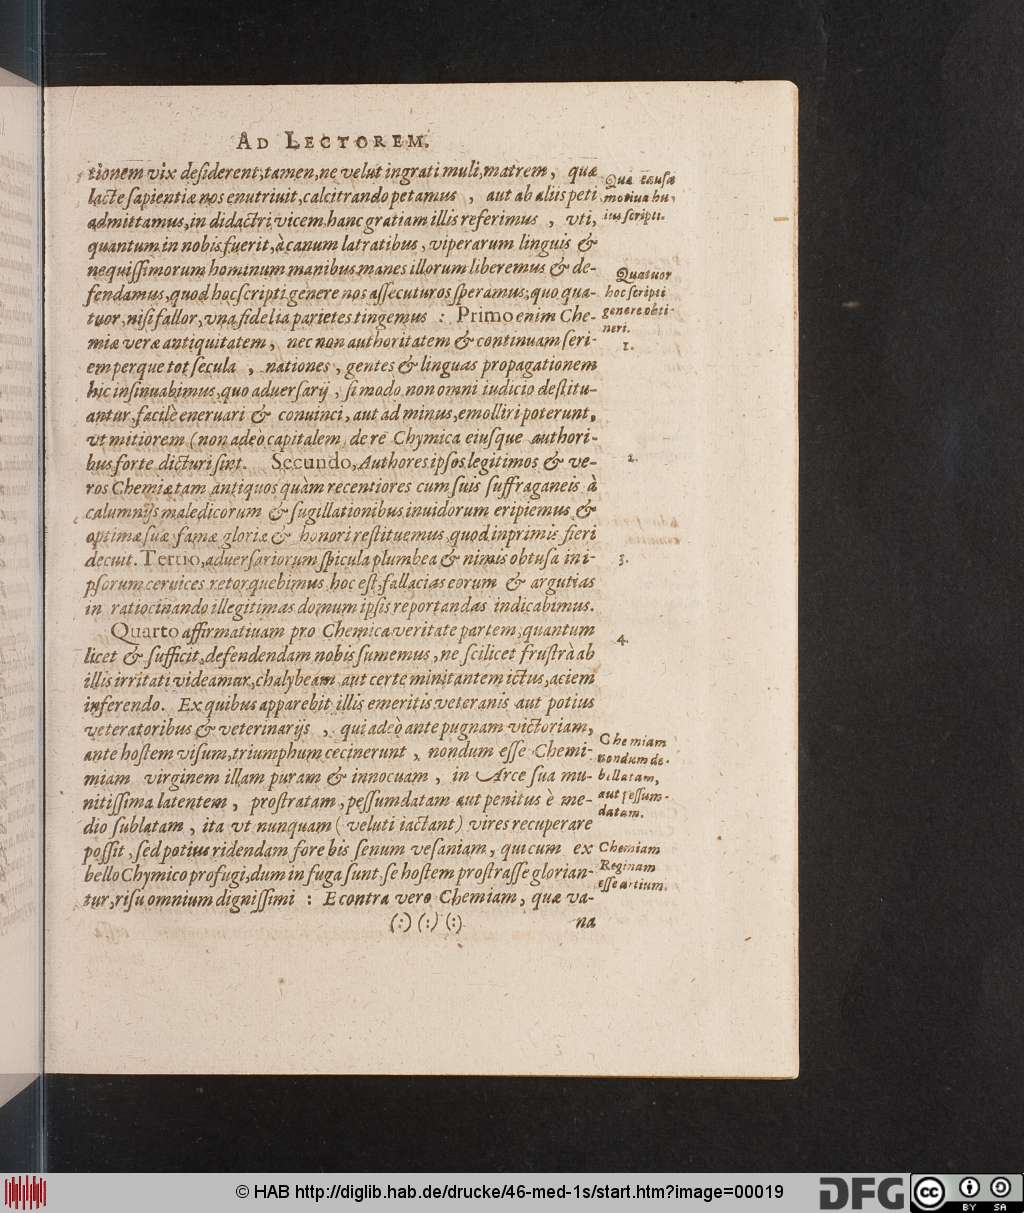 AD LECTOREM.
tionem vix desiderent, tamen, ne velut ingrati muli, matrem, quæ
lacte sapientiæ nos enutriuit, calcitrando petamus, aut ab aliis peti
admittamus, in didactri vicem hanc gratiam illis referimus, vti,
quantum in nobis fuerit, à canum latratibus, viperarum linguis &
nequissimorum hominum manibus manes illorum liberemus & de-
fendamus, quod hoc scripti genere nos assecuturos speramus, quo qua-
tuor, nisi fallor, vna fidelia parietes tingemus : Primo enim Che-
miæ veræ antiquitatem, nec non authoritatem & continuam seri-
em per que tot secula, nationes, gentes & linguas propagationem
hic insinuabimus, quo aduersarij, si modo non omni iudicio destitu-
antur, facilè eneruari & conuinci, aut ad minus, emolliri poterunt,
vt mitiorem (non adeò capitalem de re Chymica eiusque authori-
bus forte dicturi sint. Secundo, Authores ipsos legitimos & ve-
ros Chemiæ tam antiquos quàm recentiores cum suis suffraganeis à
calumnijs maledicorum & sugillationibus inuidorum eripiemus &
optimæ suæ famæ gloriæ & honori restituemus, quod inprimis fieri
decuit. Tertio, aduersariorum spicula plumbea & nimis obtusa in i-
psorum ceruices retorquebimus, hoc est, fallacias eorum & argutias
in ratiocinando illegitimas domum ipsis reportandas indicabimus.
Quarto affirmatiuam pro Chemicæ veritate partem, quantum
licet & sufficit, defendendam nobis sumemus, ne scilicet frustrà ab
illis irritati videamur, chalybeam aut certe minitantem ictus, aciem
inferendo. Ex quibus apparebit illis emeritis veteranis aut potius
veteratoribus & veterinarijs, qui adeò ante pugnam victoriam,
ante hostem visum, triumphum cecinerunt, nondum esse Chemi-
miam virginem illam puram & innocuam, in Arce sua mu-
nitissima latentem, prostratam, pessumdatam aut penitus è me-
dio sublatam, ita vt nunquam (veluti iactant) vires recuperare
possit, sed potius ridendam fore bis senum vesaniam, qui cum ex
bello Chymico profugi, dum in fuga sunt, se hostem prostrasse glorian-
tur, risu omnium dignissimi : E contra vero Chemiam, quæ va-
(:) (:) (:)
na
Quæ causa
motiua hu-
ius scripti.
Quatuor
hoc scripti
genere obti-
neri.
1.
2.
3.
4.
Chemiam
nondum de-
bellatam,
aut pessum-
datam.
Chemiam
Reginam
esse artium.
© HAB http://diglib.hab.de/drucke/46-med-1s/start.htm?image=00019
DFG
cc
BY SA